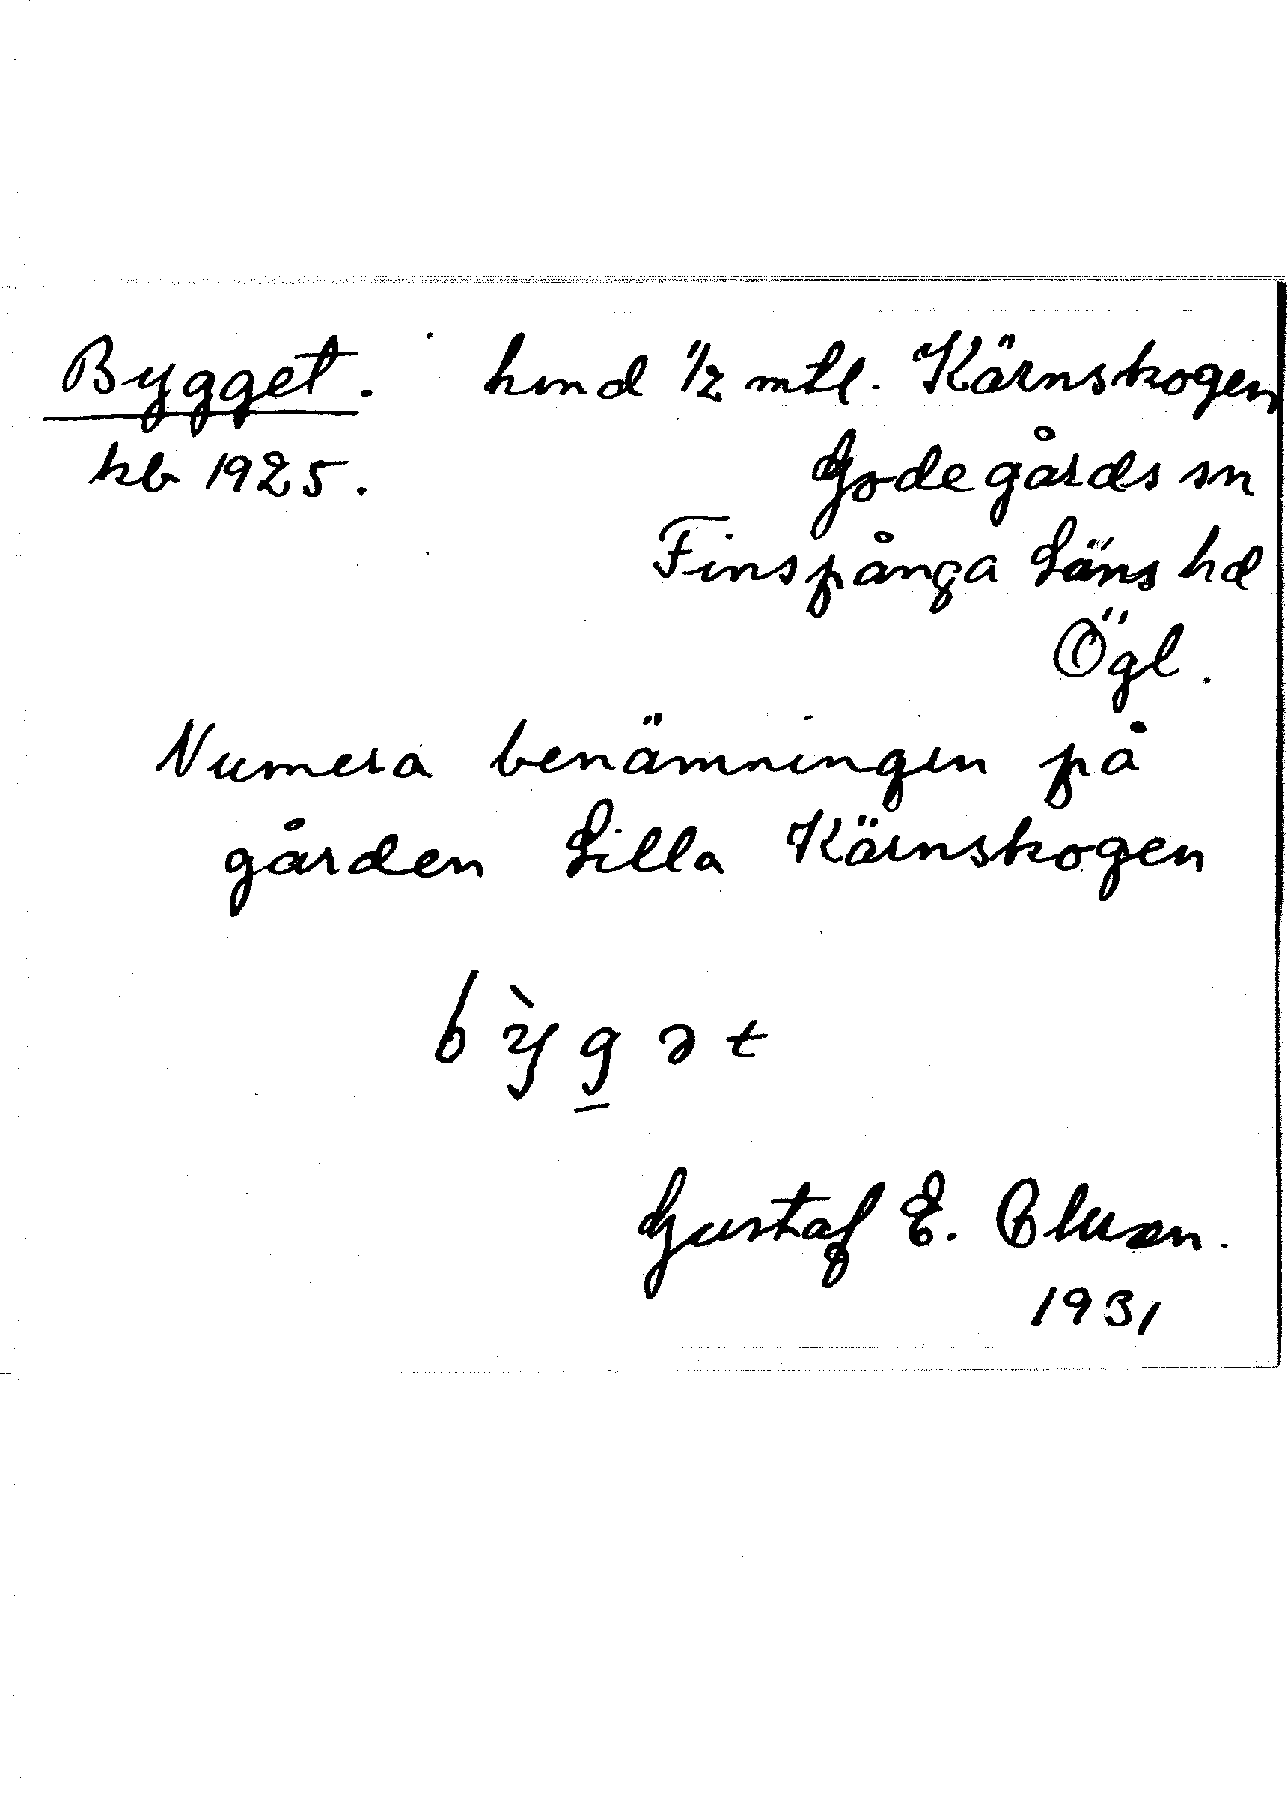 Bygget. hmd 1/2 mtl. Kärnskogen
kb 1925. Godegårds sn
Finspånga Läns hd
Ögl.
Numera benämningen på
gården Lilla Kärnskogen
bỳg̲ət
Gustaf E.
1931